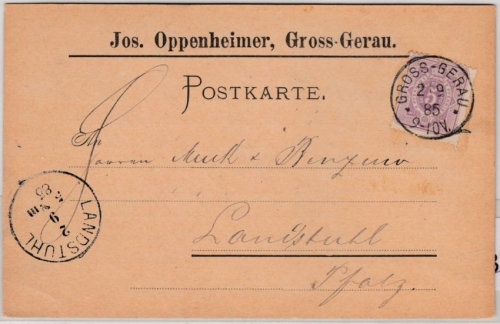 Jos. Oppenheimer, Gross-Gerau.
POSTKARTE.
GROSS-GERAU
2 9
85
An
Herren Muck &
Landstuhl
Pfalz.
LANDSTUHL
2 9
85